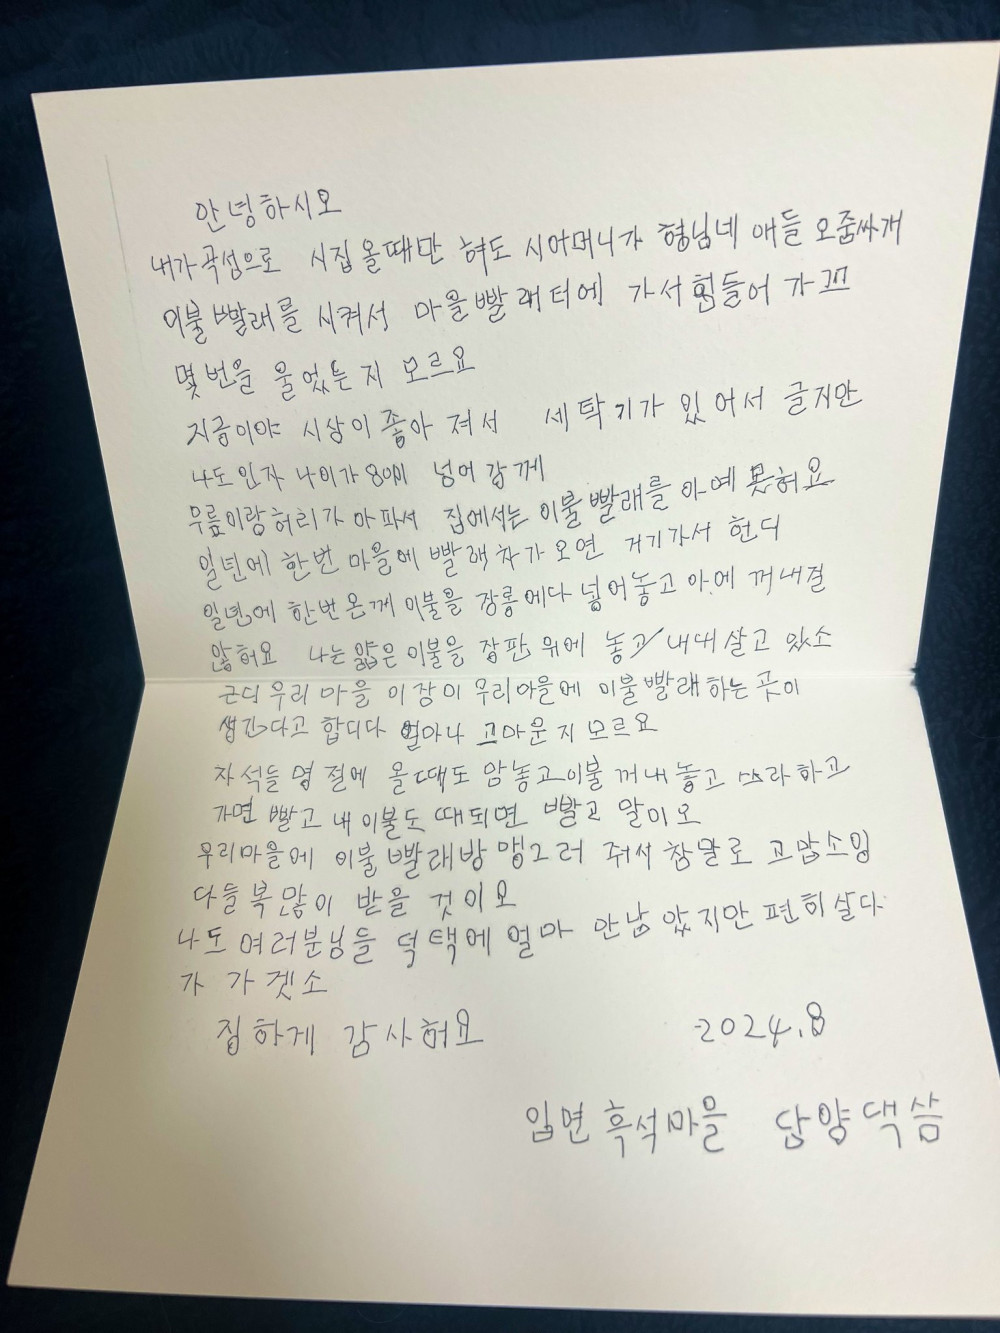 안녕하시오
내가 곡성으로 시집 올때만 혀도 시어머니가 형님네 애들 오줌싸개
이불 빨래를 시켜서 마을빨래터에 가서 힘들어 가꼬
몇번을 울었는지 모르요
지금이야 시상이 좋아 져서 세탁기가 있어서 글지만
나도 인자 나이가 80이 넘어 감께
무릎이랑 허리가 아파서 집에서는 이불빨래를 아예 못혀요
일년에 한번 마을에 빨래차가 오면 거기가서 헌디
일년에 한번온께 이불을 장롱에다 넣어놓고 아예 꺼내질
않혀요 나는 얇은 이불을 장판 위에 놓고 내내 살고 있소
근디 우리 마을 이장이 우리마을에 이불빨래하는 곳이
생긴다고 합디다 얼마나 고마운지 모르요
자석들 명절에 올때도 암놓고 이불 꺼내놓고 쓰라하고
가면 빨고 내 이불도 때되면 빨고 말이오
우리마을에 이불 빨래방 맹그러 줘서 참말로 고맙소잉
다들 복많이 받을 것이오
나도 여러분님들 덕택에 얼마 안남았지만 편히살다
가 가겟소
짐하게 감사혀요 2024.8
입면 흑석마을 담양댁 씀